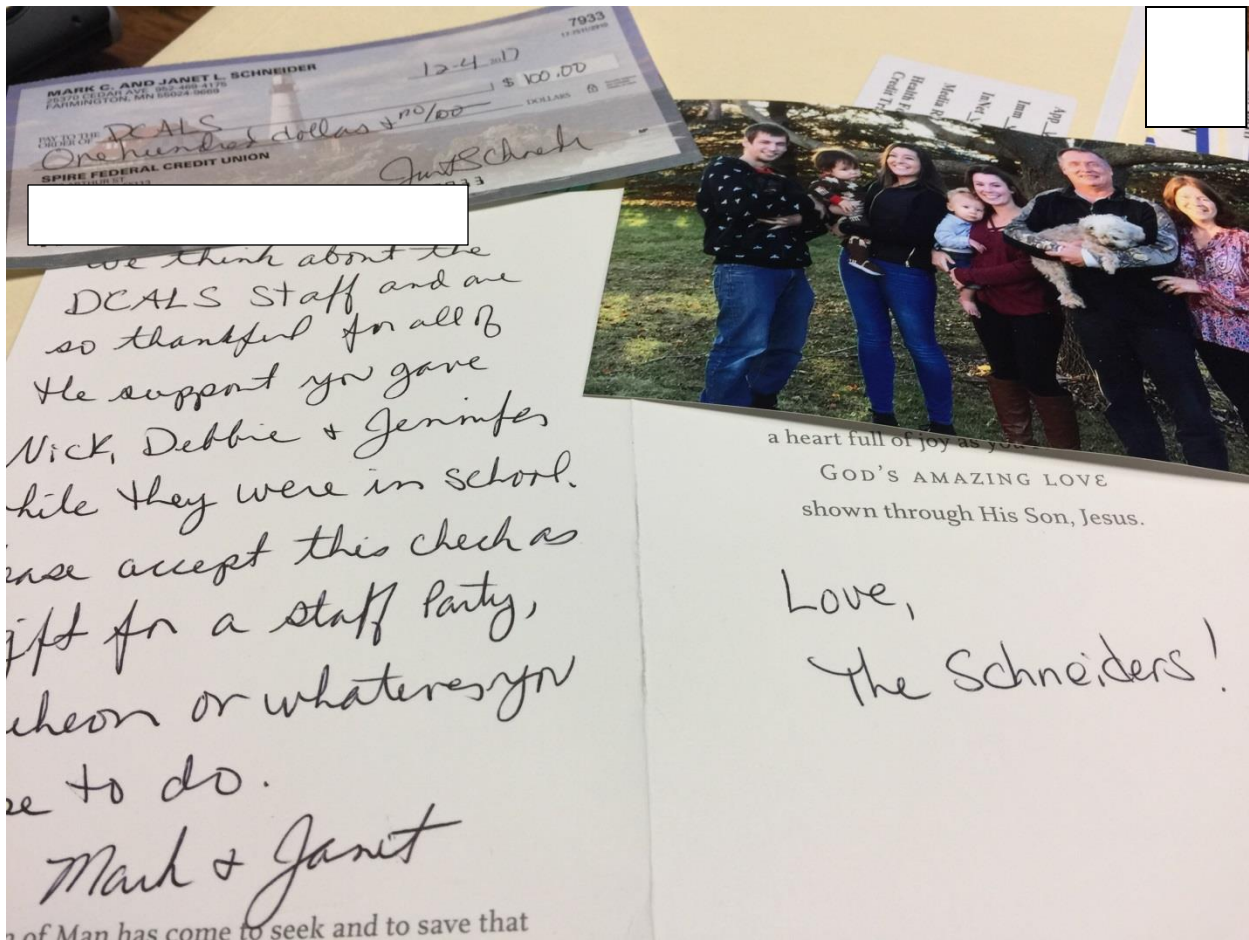 7933
MARK C. AND JANET L. SCHNEIDER
25370 CEDAR AVE 952-469-4175
FARMINGTON, MN 55024-9669
12-4 17
$ 100.00
PAY TO THE
ORDER OF
DCALS
One hundred dollas + no/00
DOLLARS
SPIRE FEDERAL CREDIT UNION
App
Imm
InNet
Media R
Health F
Credit T
we think about the
DCALS Staff and are
so thankful for all of
the support you gave
Nick, Debbie + Jennifer
hile they were in school.
ease accept this check as
gift for a staff Party,
cheon or whatever you
se to do.
Mark + Janet
n of Man has come to seek and to save that
a heart full of joy as you
GOD'S AMAZING LOVE
shown through His Son, Jesus.
Love,
The Schneiders!